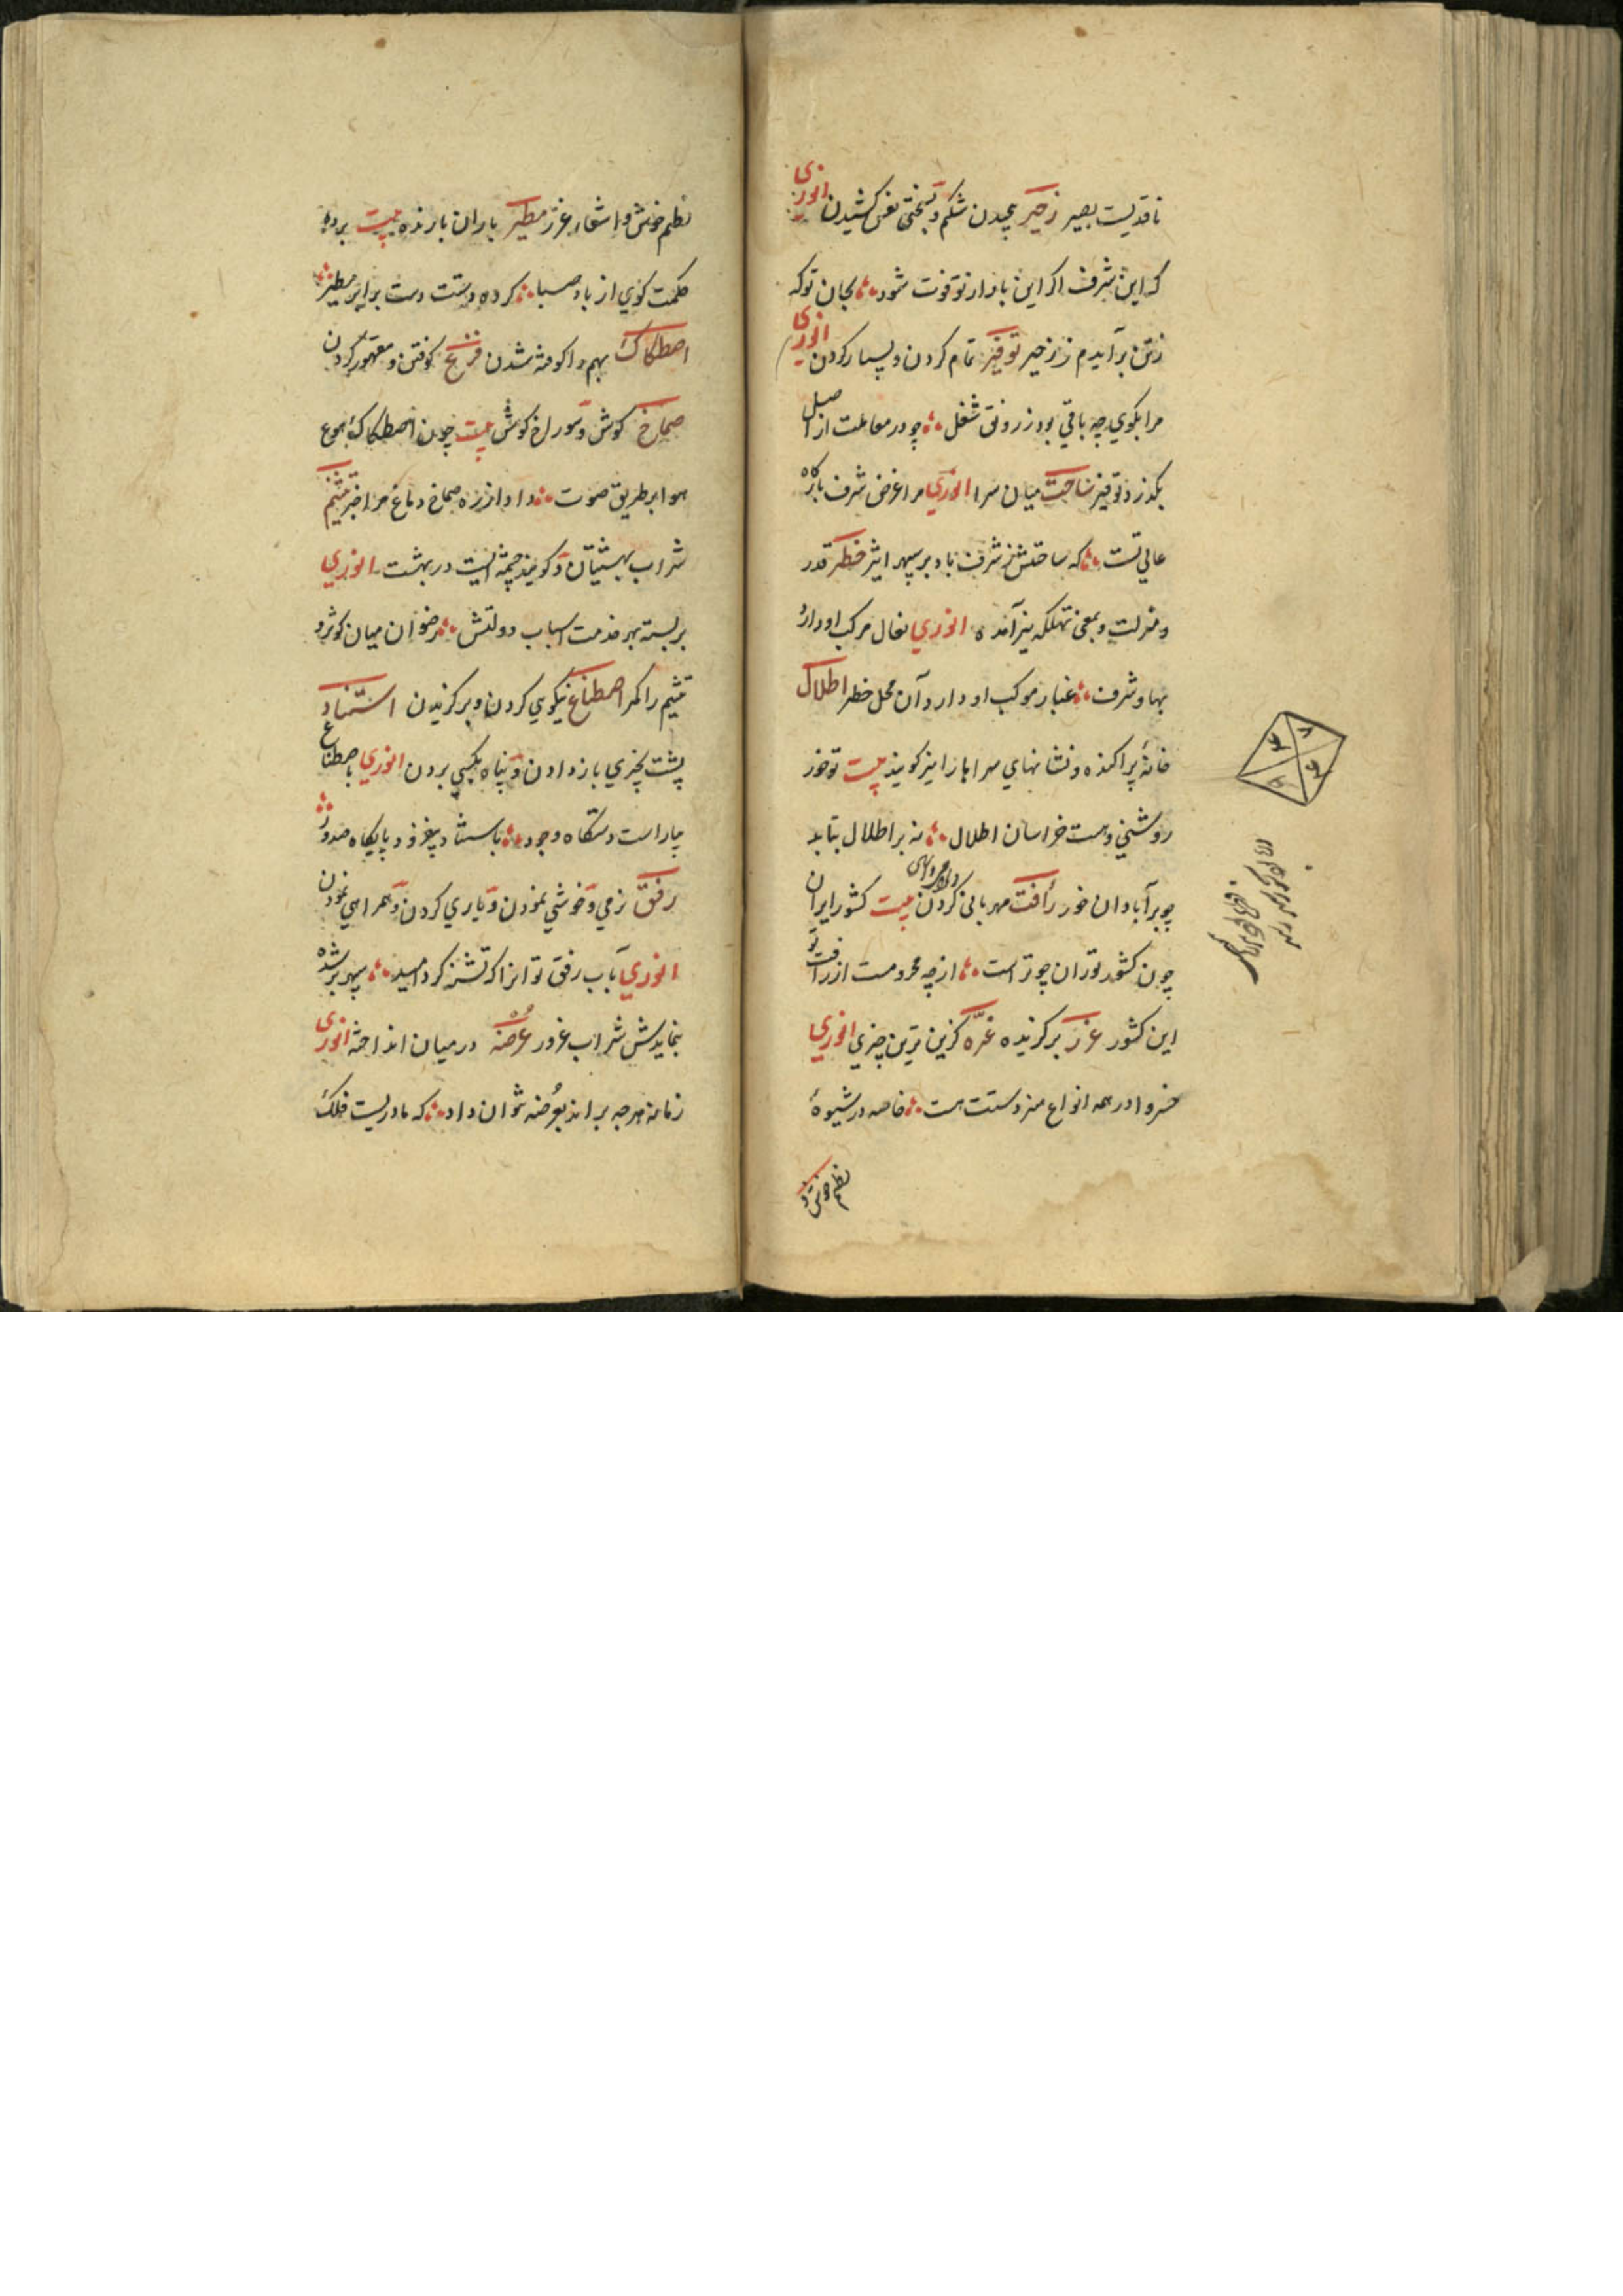 ناقدیست بصیر زحیر پیچیدن شکم و بسختی نفس کشیدن انوری
که این شرف اگر این بار از تو فوت شود بجان تو که
ز تن برآیدم ز زحیر توفیر تمام کردن و بسیار کردن انوری
مرا بکوی چه باقی بود ز رونق شغل چو در معاملت از اصل
بگذرد توفیر ساحت میان سرا انوری مرا غرض شرف بارگاه
عالی تست که ساحتش ز شرف باد بر سپهر اثیر خطر قدر
و منزلت و بمعنی تهلکه نیز آمده انوری نعال مرکب او دارد
بها و شرف غبار موکب او دارد آن محل خطر اطلال
خانهٔ پراکنده و نشانهای سرا باز نیز کویند بیت تو خور
روشنی و هست خراسان اطلال نه بر اطلال بتابد
چو بر آبادان خور رأفت مهربانی کردن بیت کشور ایران
چون کشور توران چو تراست از چه محرومست از رأفت تو
این کشور غرر برگزیده غره کزین ترین چیزی انوری
خسروا در همه انواع هنر دستت هست خاصه در شیوهٔ
نظم خوش و
نظم خوش و اشعار غرر مطیر باران بارنده بیت برده
حکمت کوی از باد صبا کرده دستت دست بر ابر مطیر
اصطکاک بهم واکوفته شدن قرع کوفتن و مقهور کردن
صماخ کوش و سوراخ کوش بیت چون اصطکاک قرع
هوا بر طریق صوت داد از ره صماخ دماغ مرا خبر تسنیم
شراب بهشتیان و کویند چشمه ایست در بهشت انوری
بر بسته بهر خدمت اسباب دولتش رضوان میان کوثر و
تسنیم را کمر اصطناع نیکویی کردن و برگزیدن استناد
پشت بچیزی باز دادن و پناه بکسی بردن انوری باصطناع
بیاراست دستکاه وجود باستناد بیفزود پایکاه صدور
رفق نرمی و خوشی نمودن و یاری کردن و همراهی نمودن
انوری بآب رفق تو انرا که تشنه کرد امید سپهر بر شده
ننمایدش شراب غرور عرضه در میان انداخته انوری
زمانه هرچه براند بعرضه نتوان داد که مادریست فلک